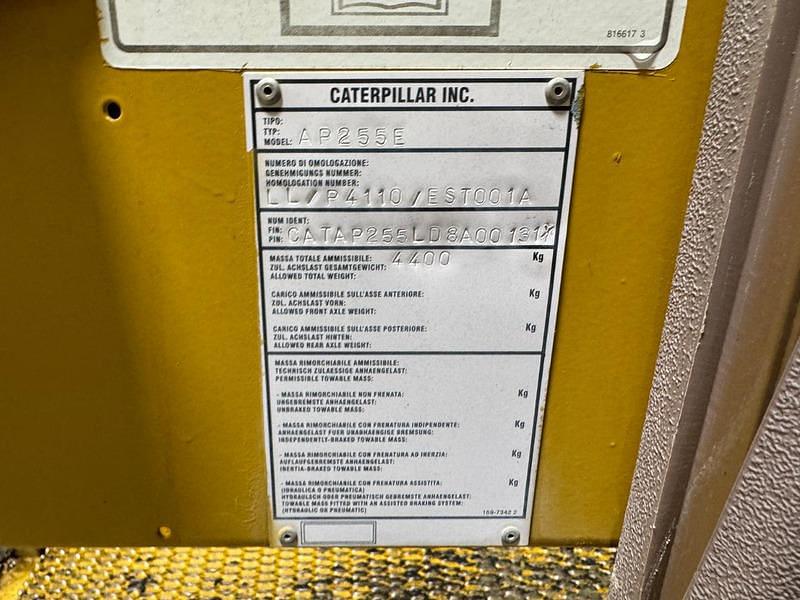 816617 3
CATERPILLAR INC.
TIPO:
TYP:
MODEL: AP255E
NUMERO DI OMOLOGAZIONE:
GENEHMIGUNGS NUMMER:
HOMOLOGATION NUMBER:
LL/P4110/EST001A
NUM IDENT:
FIN:
PIN: CATAP255LD8A00131*
MASSA TOTALE AMMISSIBILE: 4400 Kg
ZUL. ACHSLAST GESAMTGEWICHT:
ALLOWED TOTAL WEIGHT:
CARICO AMMISSIBILE SULL'ASSE ANTERIORE: Kg
ZUL. ACHSLAST VORN:
ALLOWED FRONT AXLE WEIGHT:
CARICO AMMISSIBILE SULL'ASSE POSTERIORE: Kg
ZUL. ACHSLAST HINTEN:
ALLOWED REAR AXLE WEIGHT:
MASSA RIMORCHIABILE AMMISSIBILE:
TECHNISCH ZULAESSIGE ANHAENGELAST:
PERMISSIBLE TOWABLE MASS:
- MASSA RIMORCHIABILE NON FRENATA: Kg
UNGEBREMSTE ANHAENGELAST:
UNBRAKED TOWABLE MASS:
- MASSA RIMORCHIABILE CON FRENATURA INDIPENDENTE: Kg
ANHAENGELAST FUER UNABHAENGIGE BREMSUNG:
INDEPENDENTLY-BRAKED TOWABLE MASS:
- MASSA RIMORCHIABILE CON FRENATURA AD INERZIA: Kg
AUFLAUFGEBREMSTE ANHAENGELAST:
INERTIA-BRAKED TOWABLE MASS:
- MASSA RIMORCHIABILE CON FRENATURA ASSISTITA: Kg
(IDRAULICA O PNEUMATICA)
HYDRAULISCH ODER PNEUMATISCH GEBREMSTE ANHAENGELAST:
TOWABLE MASS FITTED WITH AN ASSISTED BRAKING SYSTEM:
(HYDRAULIC OR PNEUMATIC) 169-7342 2